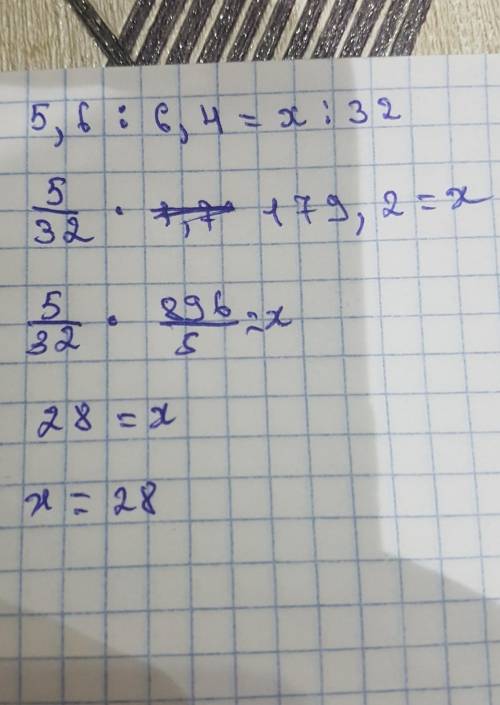 5,6 : 6,4 = x : 32
5/32 · 179,2 = x
5/32 · 896/5 = x
28 = x
x = 28